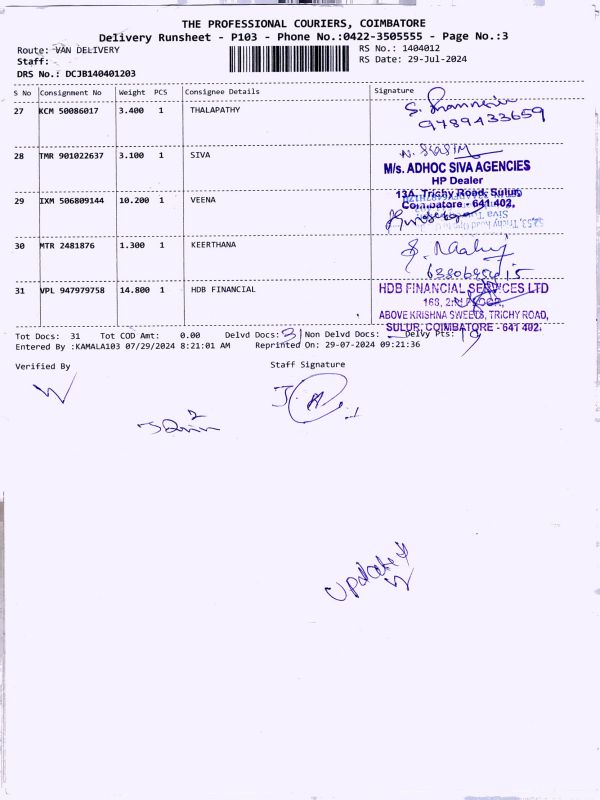 THE PROFESSIONAL COURIERS, COIMBATORE
Delivery Runsheet - P103 - Phone No.:0422-3505555 - Page No.:3
Route: VAN DELIVERY RS No.: 1404012
Staff: RS Date: 29-Jul-2024
DRS No.: DCJB140401203
S No Consignment No Weight PCS Consignee Details Signature
27 KCM 50086017 3.400 1 THALAPATHY
9789433659
28 TMR 901022637 3.100 1 SIVA
M/s. ADHOC SIVA AGENCIES
HP Dealer
13A, Trichy Road, Sulur,
Coimbatore - 641 402.
29 IXM 506809144 10.200 1 VEENA
30 MTR 2481876 1.300 1 KEERTHANA
31 VPL 947979758 14.800 1 HDB FINANCIAL
HDB FINANCIAL SERVICES LTD
ABOVE KRISHNA SWEETS, TRICHY ROAD,
SULUR, COIMBATORE - 641 402.
Tot Docs: 31 Tot COD Amt: 0.00 Delvd Docs: 31 Non Delvd Docs: Delvy Pts: 19
Entered By :KAMALA103 07/29/2024 8:21:01 AM Reprinted On: 29-07-2024 09:21:36
Verified By Staff Signature
Updated